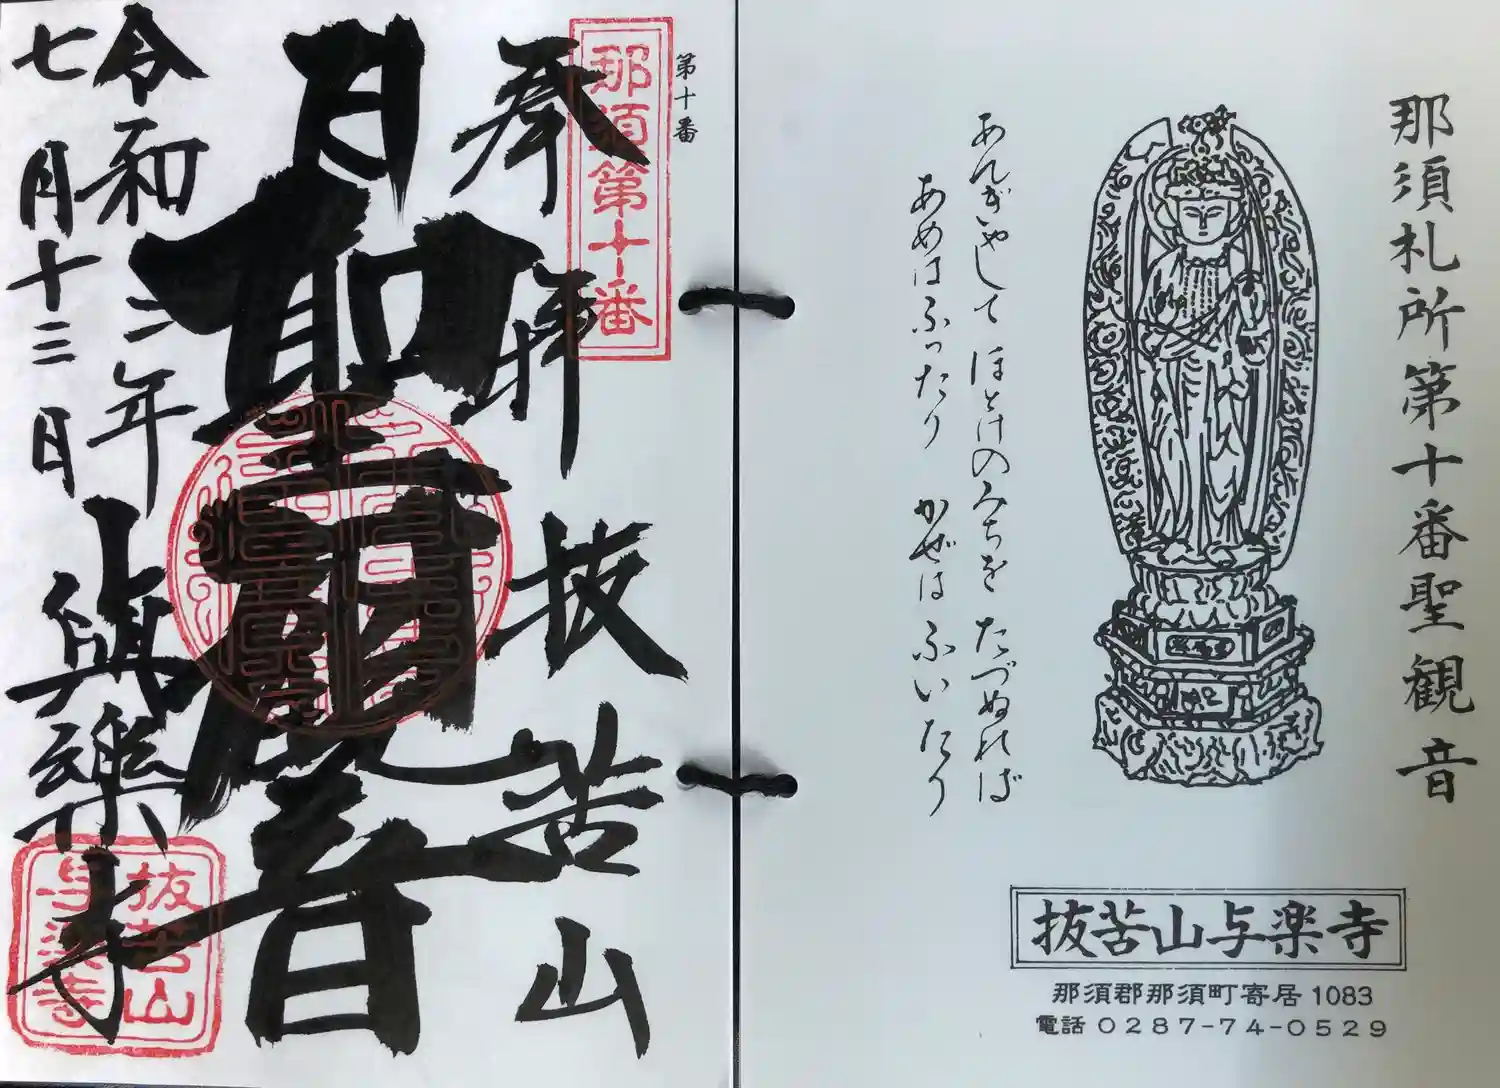 那須札所第十番聖観音
あんぎやして ほとけのみちを たづぬれば
あめはふったり かぜはふいたり
抜苦山与楽寺
那須郡那須町寄居1083
電話 0287-74-0529
第十番
那須第十番
奉拝 抜苦山
聖観音
令和二年
七月十三日
與樂寺
抜苦山
与楽寺